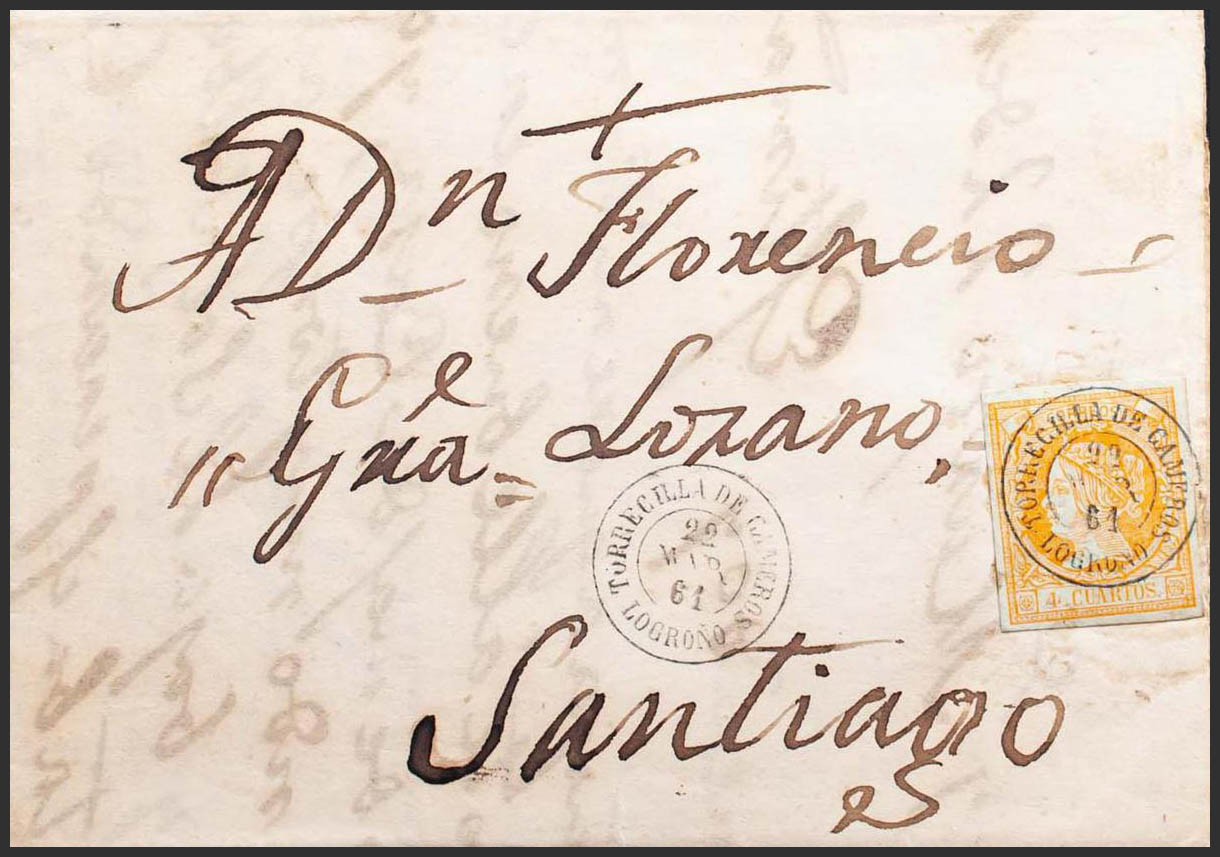 A Dn Florencio
Gna Lozano,
TORRECILLA DE CAMEROS
22
MAR
61
LOGROÑO
TORRECILLA DE CAMEROS
22
61
LOGROÑO
4 CUARTOS.
Santiago